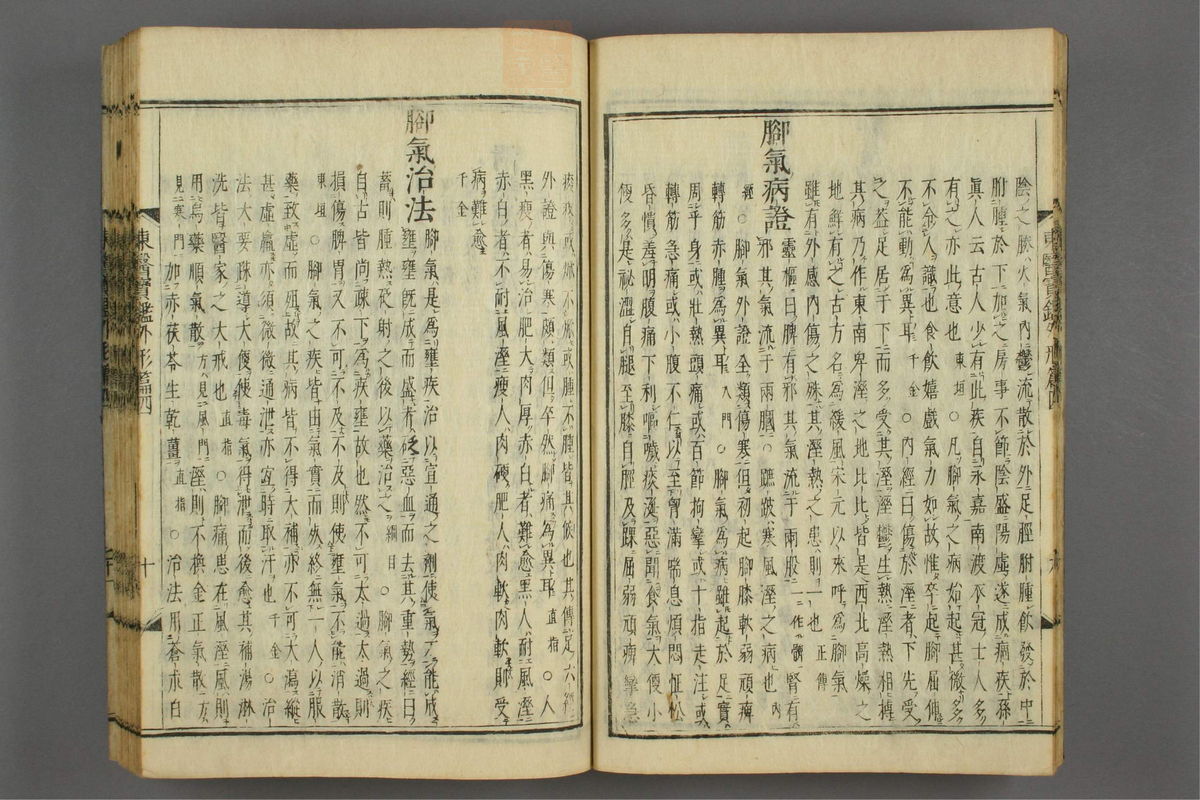 陰之勝火氣內鬱流散於外足脛胕腫飲發於中
胕腫於下加之房事不節陰盛陽虛遂成痼疾孫
眞人云古人少有此疾自永嘉南渡衣冠士人多
有之亦此意也東垣○凡腳氣之病始起甚微多
不令人識也食飲嬉戲氣力如故惟卒起腳屈伸
不能動爲異耳千金○內經曰傷於溼者下先受
之盖足居于下而多受其溼溼鬱生熱溼熱相搏
其病乃作東南卑溼之地比比皆是西北高燥之
地鮮有之古方名爲緩風宋元以來呼爲腳氣
雖有外感內傷之殊其溼熱之患則一也正傳
腳氣病證
靈樞曰脾有邪其氣流于兩股一作髀腎有
邪其氣流于兩膕○蹠跛寒風溼之病也內
經○腳氣外證全類傷寒但初起腳膝軟弱頑痺
轉筋赤腫爲異耳入門○腳氣爲病雖起於足實
周乎身或壯熱頭痛或百節拘攣或十指走注或
轉筋急痛或小腹不仁以至胷滿喘息煩悶怔忪
昏憒羞明腹痛下利嘔噦痰涎惡聞食氣大便小
便多是祕澀自腿至膝自脛及踝屈弱頑痺攣急
痠疼或焮或不焮或腫或不腫皆其候也其傳足六經
外證與傷寒頗類但卒然腳痛爲異耳直指○人
黑瘦者易治肥大肉厚赤白者難愈黑人耐風溼
赤白者不耐風溼瘦人肉硬肥人肉軟肉軟則受
病難愈
千金
腳氣治法
腳氣是爲壅疾治以宣通之劑使氣不能成
壅壅既成而盛者砭惡血而去其重勢經曰
蓄則腫熱砭射之後以藥治之綱目○腳氣之疾
自古皆尚疎下爲疾壅故也然不可太過太過則
損傷脾胃又不可不及不及則使壅氣不能消散
東垣○腳氣之疾皆由氣實而死終無一人以服
藥致虛而殂故其病皆不得大補亦不可大瀉縱
甚虛羸亦須微微通泄亦宜時取汗也千金○治
法大要疎導大便使毒氣得泄而後愈其補湯淋
洗皆醫家之大戒也直指○腳痛患在風溼風則
用烏藥順氣散方見風門溼則不換金正氣散方
見寒門加赤茯苓生乾薑直指○治法用蒼朮白
東醫寶鑑外形篇四
十